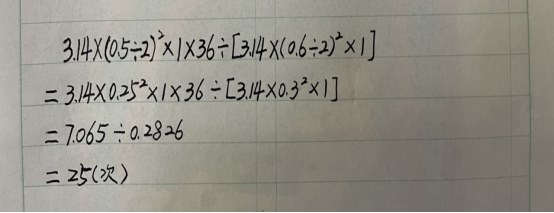 3.14×(0.5÷2)²×1×36÷[3.14×(0.6÷2)²×1]
=3.14×0.25²×1×36÷[3.14×0.3²×1]
=7.065÷0.2826
=25(次)